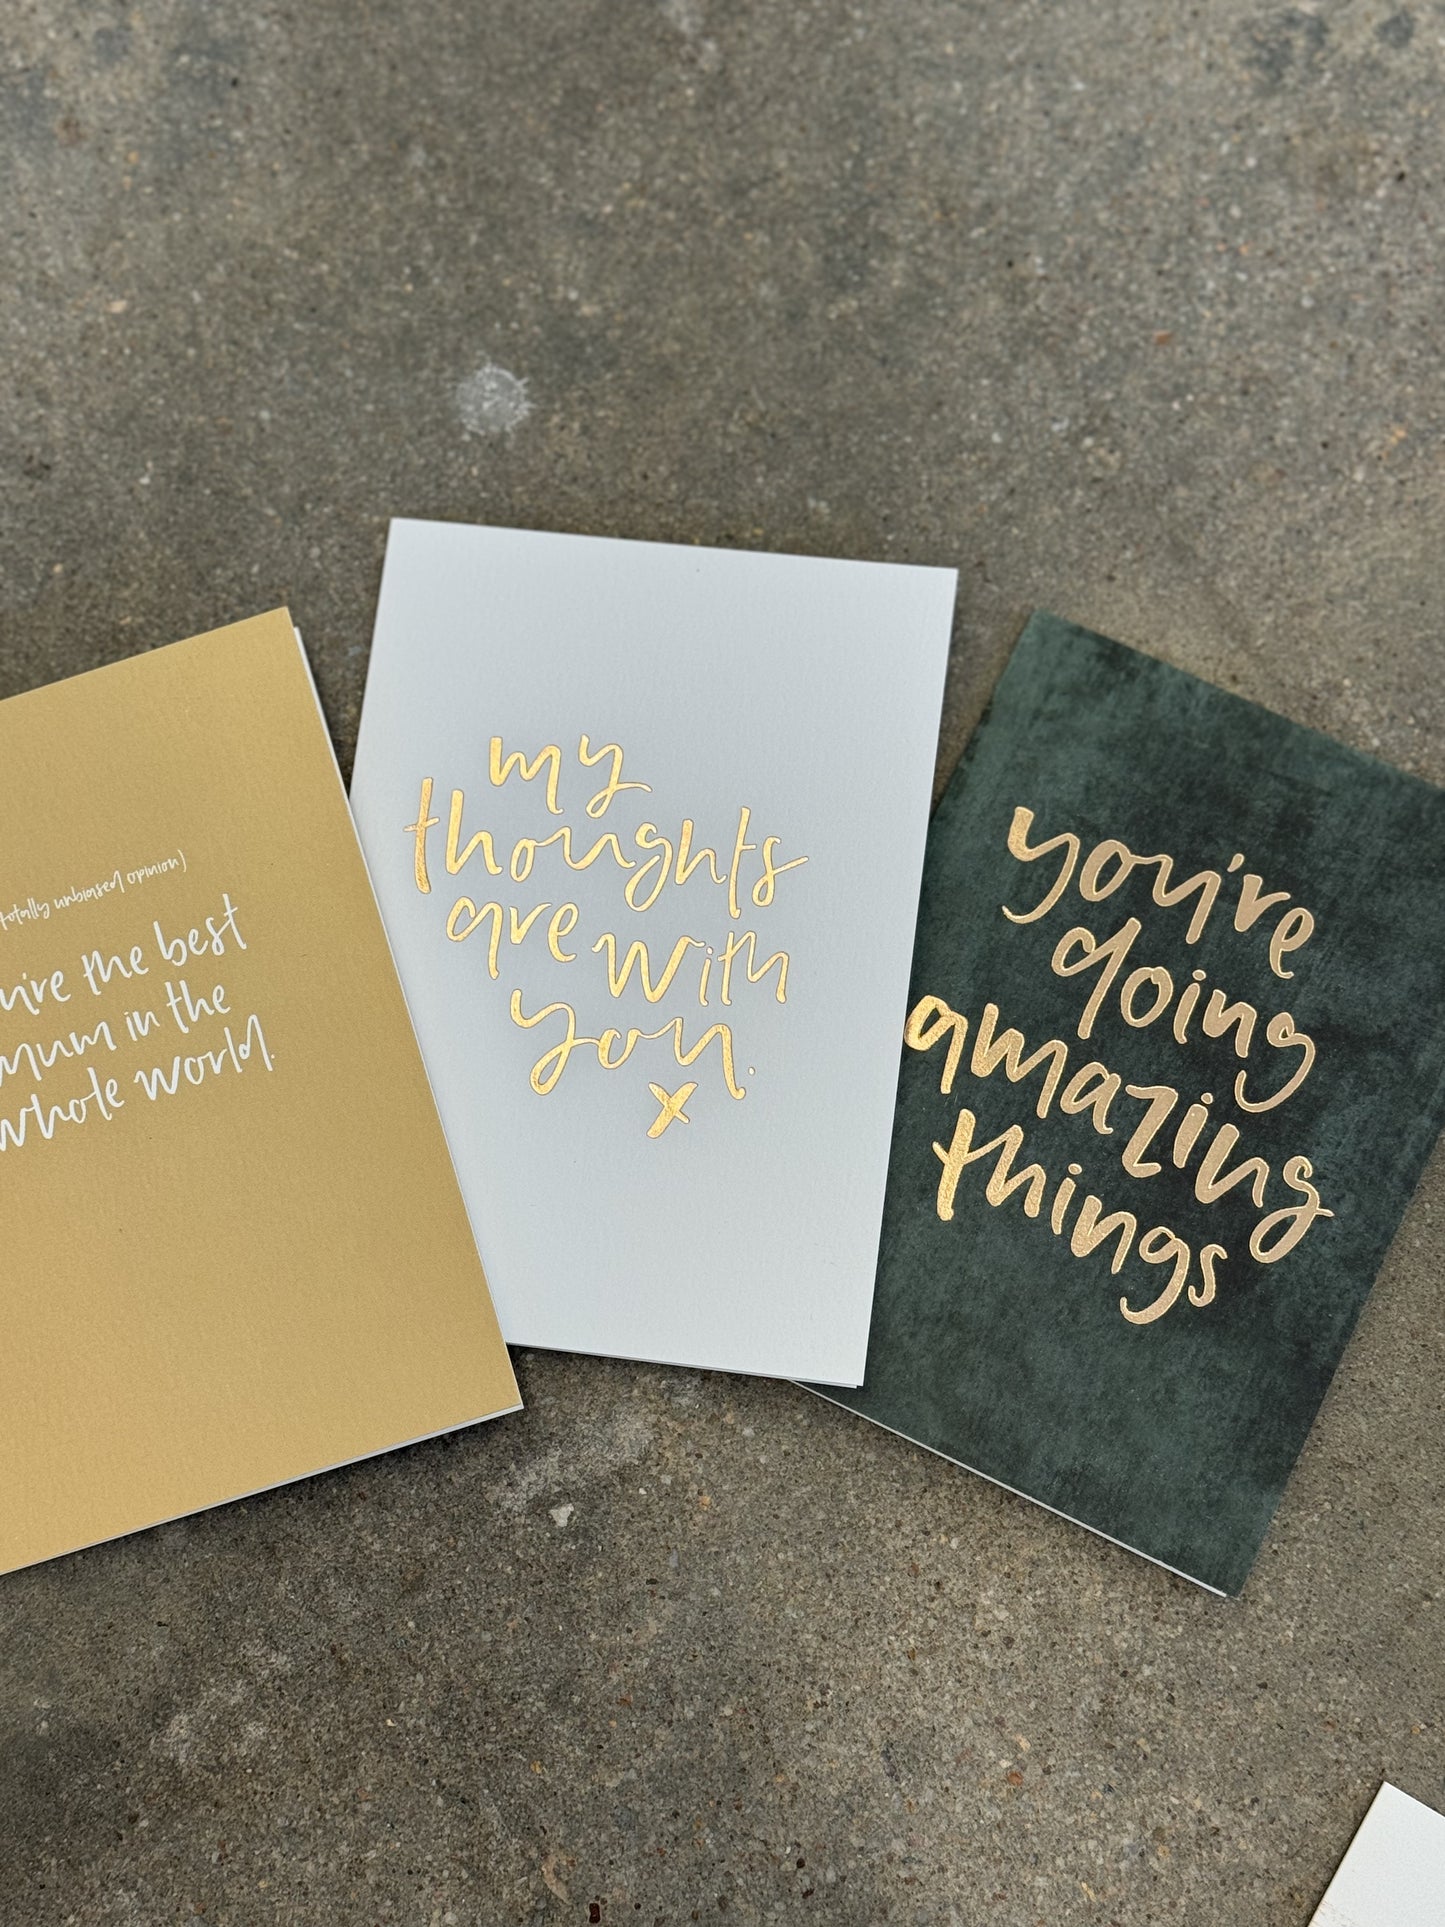 totally unbiased opinion)
the best
mum in the
whole world.
my
thoughts
are with
you.
x
you're
doing
amazing
things